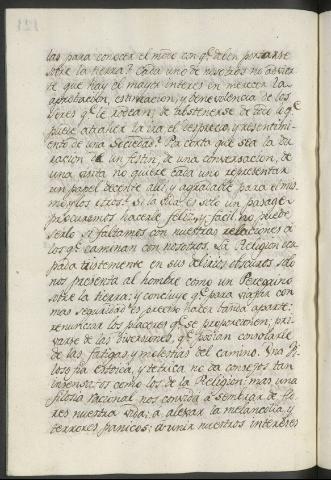 las para conocer el modo con qᵉ deben portarse
sobre la tierra? Cada uno de nosotros no advier
te que hay el mayor interes en merecer la
aprobacion, estimacion, y benevolencia de los
seres qᵉ le rodean; de abstenerse de todo lo qᵉ
puede atraher la ira el desprecio y resentimi-
ento de una Sociedad? Por corta que sea la du
racion de un festin, de una conversacion, de
una visita no quiere cada uno representar
un papel decente alli, y agradable para él mis
mo, y los otros? Si la vida es solo un pasage
procuremos hacerle feliz, y facil: no puede
serlo si faltamos con nuestras relaciones a
los qᵉ caminan con nosotros. La Religion ocu
pada tristemente en sus delirios obscuros, so-lo
nos presenta al hombre como un Peregrino
sobre la tierra; y concluye qᵉ para viajar con
mas seguridad es preciso hacer banda aparte:
renunciar los placeres qᵉ se proporcionen; pri
varse de las diversiones, qᵉ podian consolarle
de las fatigas y molestias del camino. Una Fi
losofia estoica, y tetrica no da consejos tan
insensatos como los de la Religion: mas una
filosofia racional nos convida á sembrar de flo
res nuestra vida; a alexar la melancolia, y
terrores panicos; á unir nuestros intereses